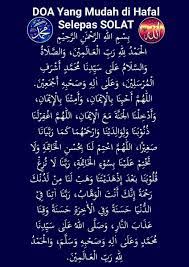 DOA Yang Mudah di Hafal
Selepas SOLAT
بِسْمِ اللَّهِ الرَّحْمَنِ الرَّحِيْمِ
الْحَمْدُ لِلَّهِ رَبِّ الْعَالَمِيْنَ، وَالصَّلَاةُ
وَالسَّلَامُ عَلَى سَيِّدِنَا مُحَمَّدٍ أَشْرَفِ
الْمُرْسَلِيْنَ، وَعَلَى آلِهِ وَصَحْبِهِ أَجْمَعِيْنَ.
اللَّهُمَّ أَحْيِنَا بِالْإِيْمَانِ، وَأَمِتْنَا بِالْإِيْمَانِ،
وَأَدْخِلْنَا الْجَنَّةَ مَعَ الْإِيْمَانِ، اللَّهُمَّ اغْفِرْ لَنَا
ذُنُوْبَنَا وَلِوَالِدَيْنَا وَارْحَمْهُمَا كَمَا رَبَّيَانَا
صَغِيْرًا. اللَّهُمَّ اخْتِمْ لَنَا بِحُسْنِ الْخَاتِمَةِ، وَلَا
تَخْتِمْ عَلَيْنَا بِسُوْءِ الْخَاتِمَةِ، رَبَّنَا لَا تُزِغْ
قُلُوْبَنَا بَعْدَ إِذْ هَدَيْتَنَا وَهَبْ لَنَا مِنْ لَدُنْكَ
رَحْمَةً إِنَّكَ أَنْتَ الْوَهَّابُ، رَبَّنَا آتِنَا فِي
الدُّنْيَا حَسَنَةً وَفِي الْآخِرَةِ حَسَنَةً وَقِنَا
عَذَابَ النَّارِ، وَصَلَّى اللَّهُ عَلَى سَيِّدِنَا
مُحَمَّدٍ وَعَلَى آلِهِ وَصَحْبِهِ وَسَلَّمَ، وَالْحَمْدُ
لِلَّهِ رَبِّ الْعَالَمِيْنَ.